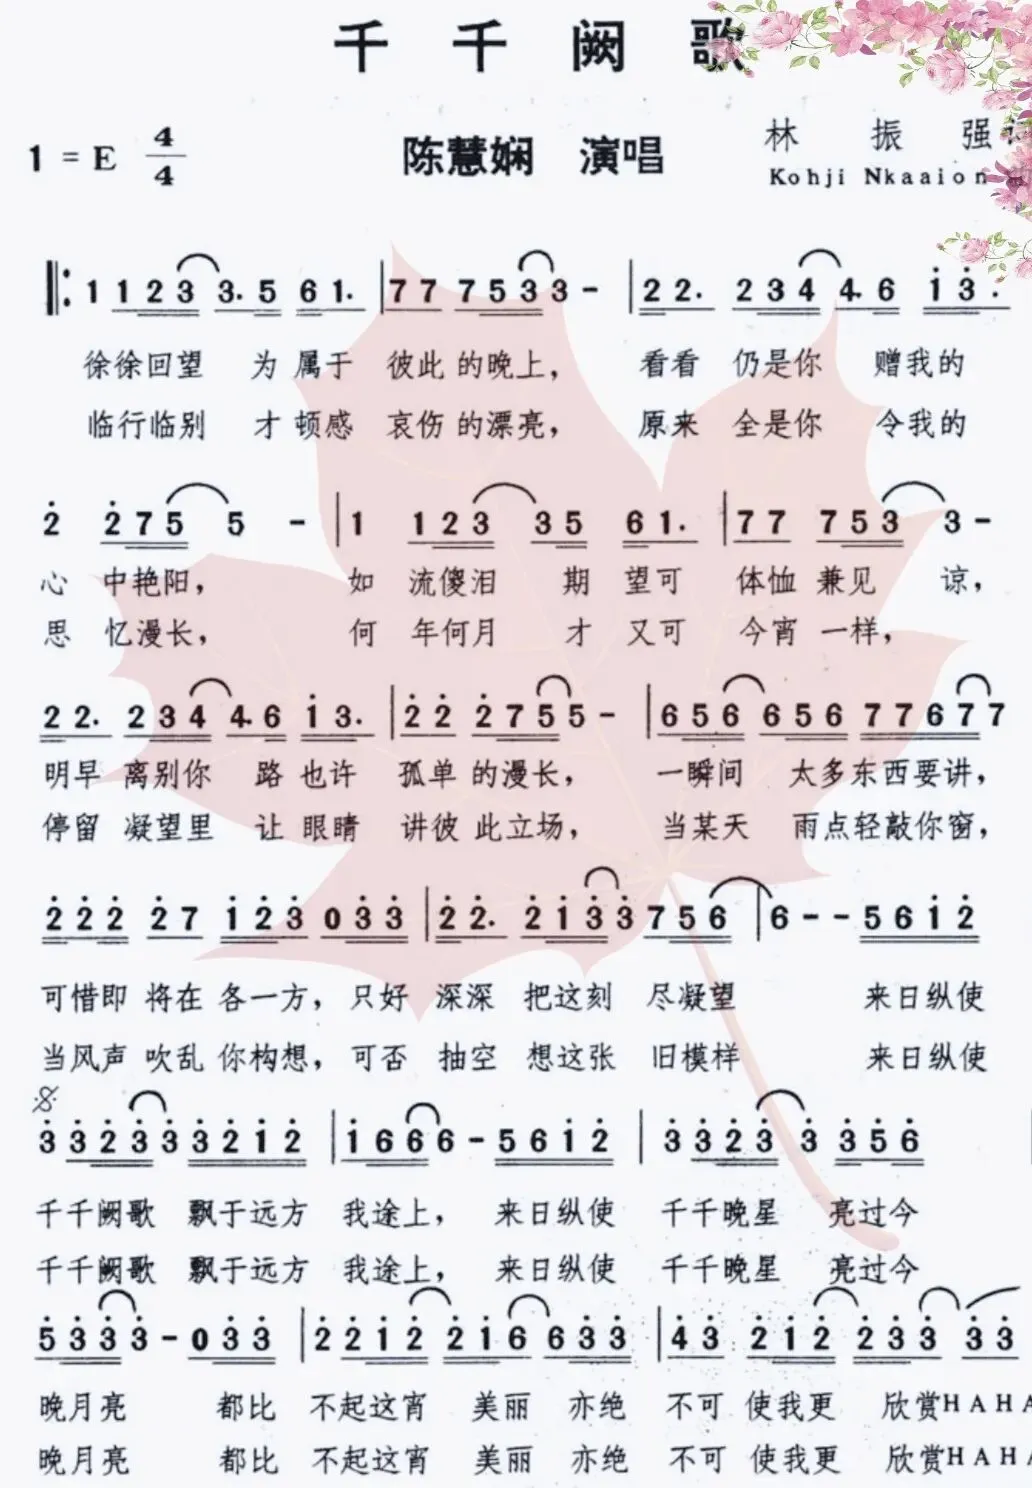 千千阙歌
1 = E 4/4 陈慧娴 演唱 林振强词
Kohji Nkaaion
1 1 2 3 3. 5 6 1. | 7 7 7 5 3 3 - | 2 2. 2 3 4 4. 6 i 3.
徐徐回望 为属于 彼此的晚上， 看看 仍是你 赠我的
临行临别 才顿感 哀伤的漂亮， 原来 全是你 令我的
2 2 7 5 5 - | 1 1 2 3 3 5 6 1. | 7 7 7 5 3 3 -
心 中艳阳， 如 流傻泪 期 望可 体恤 兼见 谅，
思 忆漫长， 何 年何月 才 又可 今宵 一样，
2 2. 2 3 4 4. 6 i 3. | 2 2 2 7 5 5 - | 6 5 6 6 5 6 7 7 6 7 7
明早 离别你 路 也许 孤单 的漫长， 一瞬间 太多东西要讲，
停留 凝望里 让 眼睛 讲彼 此立场， 当某天 雨点轻敲你窗，
2 2 2 2 7 i 2 3 0 3 3 | 2 2. 2 i 3 3 7 5 6 | 6 - - 5 6 i 2
可惜即 将在 各一方， 只好 深深 把这刻 尽凝望 来日纵使
当风声 吹乱 你构想， 可否 抽空 想这张 旧模样 来日纵使
3 3 2 3 3 3 2 i 2 | i 6 6 6 - 5 6 i 2 | 3 3 2 3 3 3 5 6
千千阙歌 飘于远方 我途上， 来日纵使 千千晚星 亮过今
千千阙歌 飘于远方 我途上， 来日纵使 千千晚星 亮过今
5 3 3 3 - 0 3 3 | 2 2 i 2 2 i 6 6 3 3 | 4 3 2 i 2 2 3 3 3 3
晚月亮 都比 不起这宵 美丽 亦绝 不可 使我更 欣赏HAHA
晚月亮 都比 不起这宵 美丽 亦绝 不可 使我更 欣赏HAHA